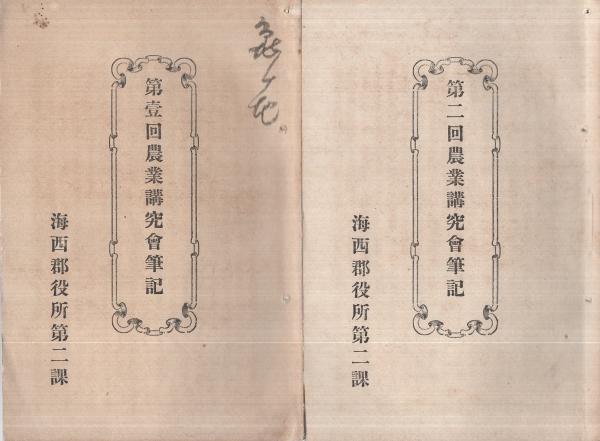 第壹回農業講究會筆記
海西郡役所第二課
第二回農業講究會筆記
海西郡役所第二課